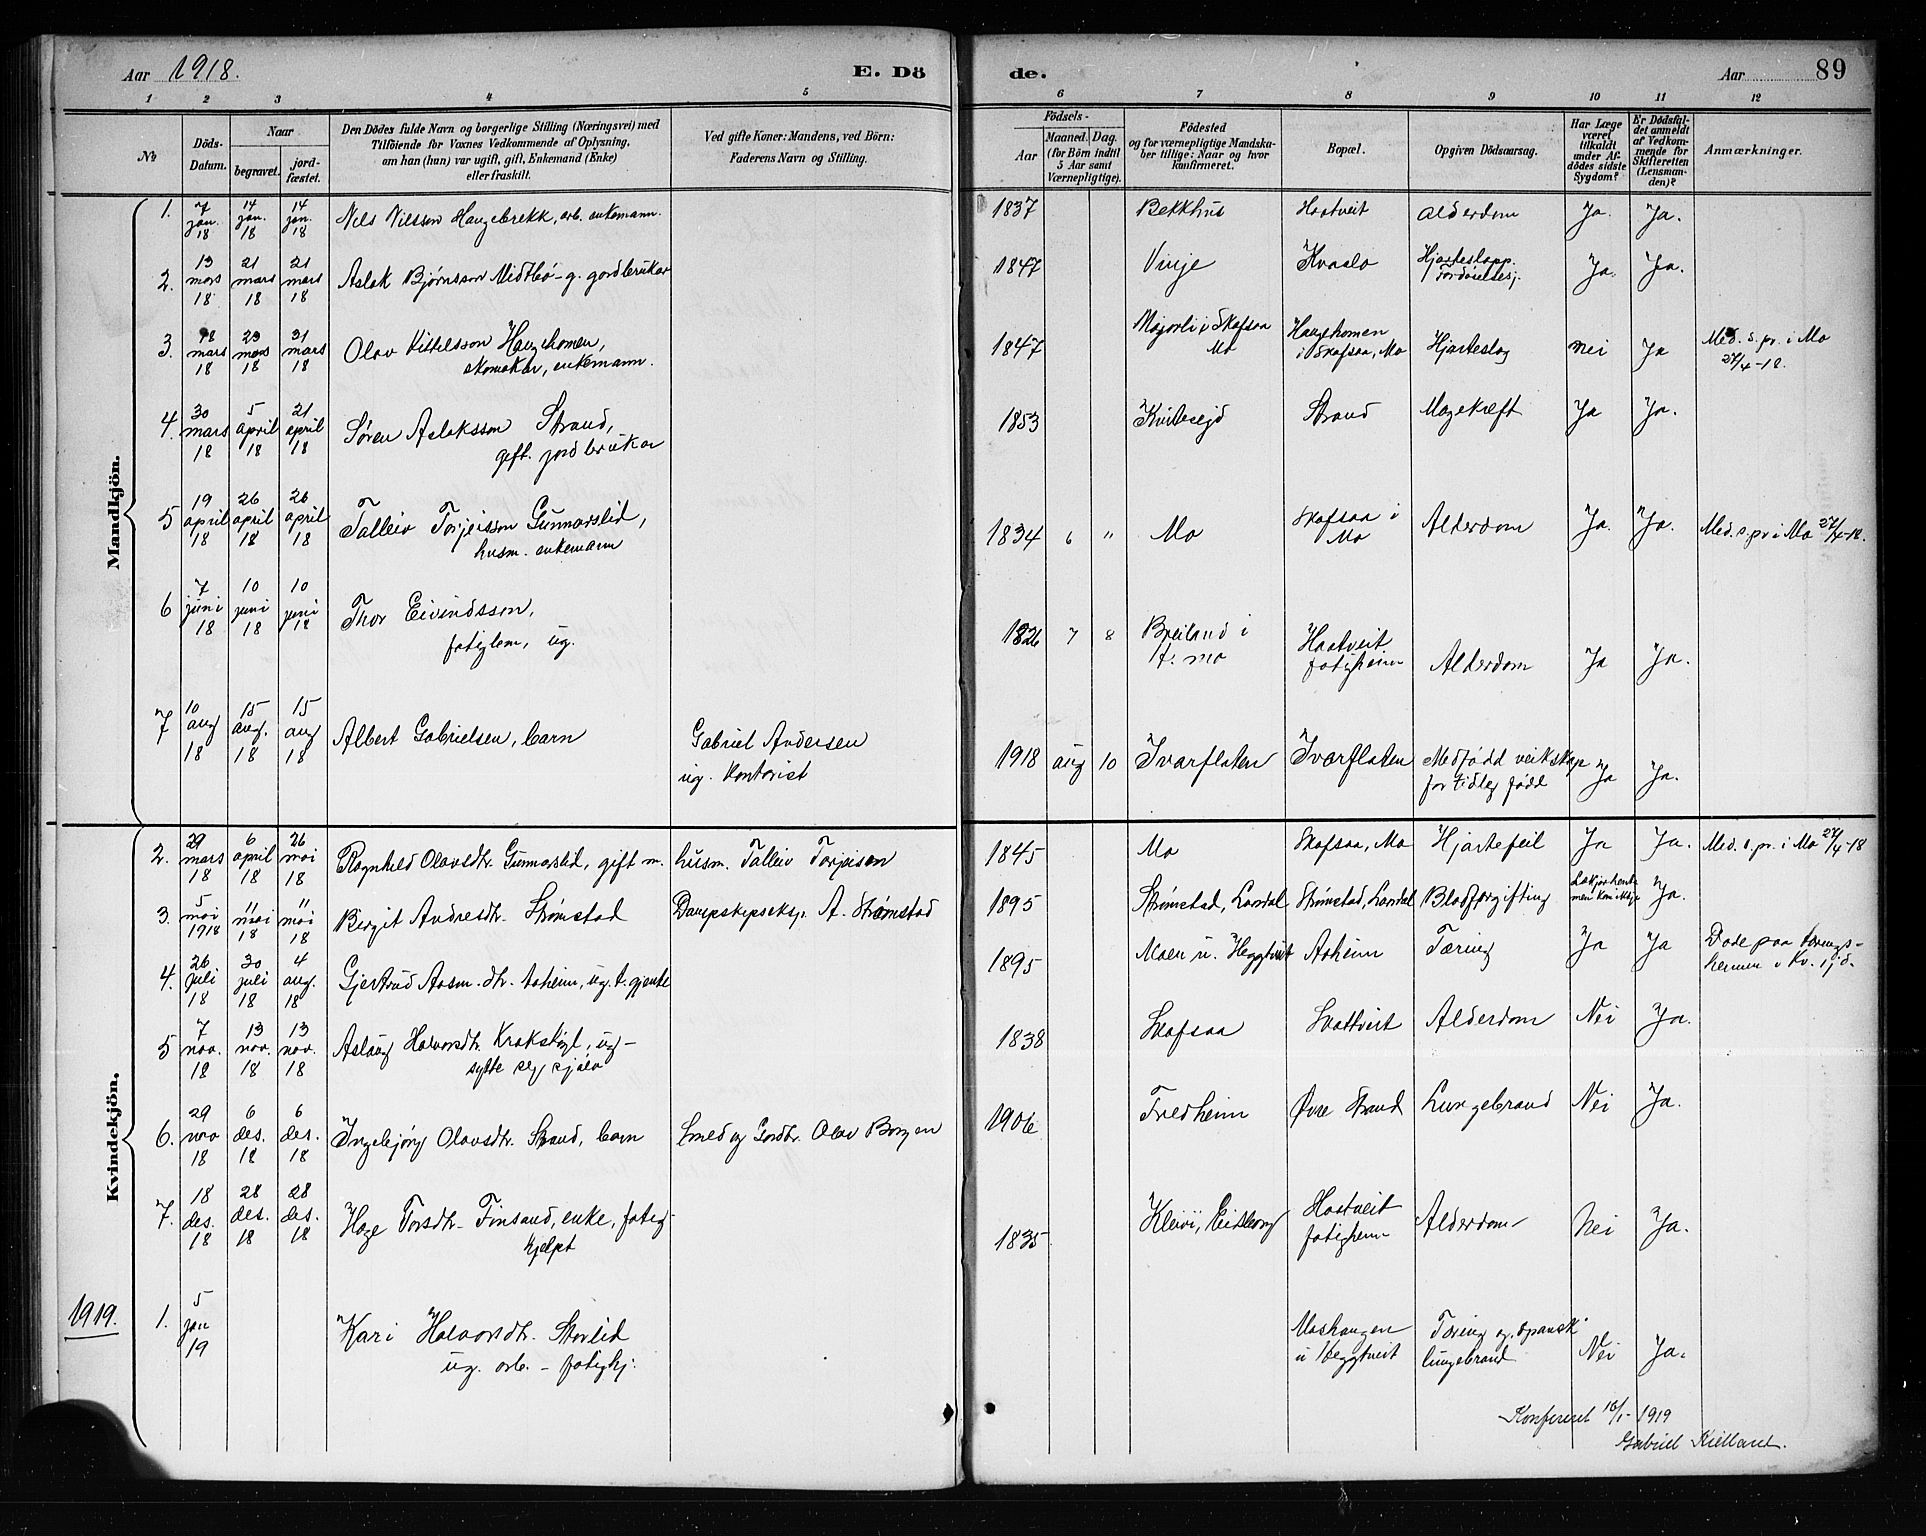 Aar 1918. E. Dö de. Aar 89
1 2 3 4 5 6 7 8 9 10 11 12
№
Döds-Datum.
Naar
begravet.
jord-fæstet.
Den Dödes fulde Navn og borgerlige Stilling (Næringsvei) med
Tilföiende for Voxnes Vedkommende af Oplysning,
om han (hun) var ugift, gift, Enkemand (Enke)
eller fraskilt.
Ved gifte Koner: Mandens, ved Börn:
Faderens Navn og Stilling.
Födsels-
Aar
Maaned. Dag.
(for Börn indtil
5 Aar samt
Værnepligtige).
Födested
og for værnepligtige Mandska-
ber tillige: Naar og hvor
konfirmeret.
Bopæl.
Opgiven Dödsaarsag.
Har Læge
været
tilkaldt
under Af-
dödes sidste
Sygdom?
Er Dödsfal-
det anmeldt
af Vedkom-
mende for
Skifteretten
(Lensman-
den)?
Anmærkninger.
Mandkjön.
1. 7 jan. 18 14 jan. 18 14 jan. 18 Nils Nilsson Haugebrekk, arb. enkemann. 1837 Bekkhus Haatveit Alderdom Ja. Ja.
2. 13 mars 18 21 mars 18 21 mars 18 Aslak Bjørnsson Midtbø - g. gardbrukar 1847 Vinje Kvaslo Hjarteslapp. Ja. Ja.
3. 18 mars 18 23 mars 18 31 mars 18 Olav Kittelsson Haugehomen,
skomakar, enkemann. 1847 Mogorli i Skafsaa
Mo Haugehomen
i Skafsaa, Mo Hjarteslag Nei Ja Med. s. pr. i Mo
27/4-18.
4. 30 mars 18 5 april 18 21 april 18 Søren Aslaksson Strand,
gift. jordbrukar 1853 Kviteseid Strand Magekræft Ja Ja.
5 19 april 18 26 april 18 26 april 18 Talleiv Torjeisson Gunnarslid,
husm. enkemann 1834 6 " Mo Skafsaa i
Mo Alderdom Ja. Ja. Med. s. pr i Mo 27/4-18.
6 7 juni 18 10 juni 18 10 juni 18 Thor Eivindsson,
fatiglem, ug. 1826 7 8 Breiland i
t. Mo Haatveit
fatigheim Alderdom Ja Ja.
7 10 aug 18 15 aug. 18 15 aug 18 Albert Gabrielsen, barn Gabriel Andersen
ug. kontorist 1918 aug 10 Ivarflaten Ivarflaten Medfødd veikskap
for tidleg fødd Ja Ja.
Kvindekjön.
2. 29 mars 18 6 april 18 26 mai 18 Ragnhild Olavsdtr. Gunnarslid, gift m. husm. Talleiv Torjeisson 1845 Mo Skafsaa, Mo Hjartefeil Ja Ja. Med. s. pr. i Mo 27/4-18
3. 5 mai 1918 11 mai 18 11 mai 18 Birgit Andresdtr. Strømstad Dampskipseksp. A. Strømstad 1895 Strømstad, Laardal Strømstad, Laardal Blodforgifting Ja.
4. 26 juli 18 30 juli 18 4 aug. 18 Gjertrud Aasm. dtr. Aaheim, ug. t. gjente 1895 Moen u. Heggtveit Aaheim Tæring Ja Ja Døde paa tærings-
heimen i Kv.sjd.
5 7 nov. 18 13 nov. 18 13 nov. 18 Aslaug Halvorsdtr. Krakstigl, ug-
sytte seg sjølv 1838 Skafsaa Skattveit Alderdom Nei Ja.
6. 29 nov 18 6 des. 18 6 des. 18 Ingebjørg Olavsdtr. Strand, barn Smed og Gardbr. Olav Borgen 1906 Fredheim Øvre Strand Lungebrand Nei Ja.
7. 18 des. 18 28 des. 18 28 des. 18 Hæge Torsdtr. Finsand, enke, fatig-
hjelpt 1835 Kleivi, Eidsborg Haatveit
fatigheim Alderdom Nei Ja.
1919. 1. 5 jan 19 Kari Halvorsdtr. Storlid
ug. arb. - fatighj. Moshaugen
u Heggtveit Tæring og "spansk"
lungebrand Nei Ja.
Konfereret 16/1-1919
Gabriel Kielland.